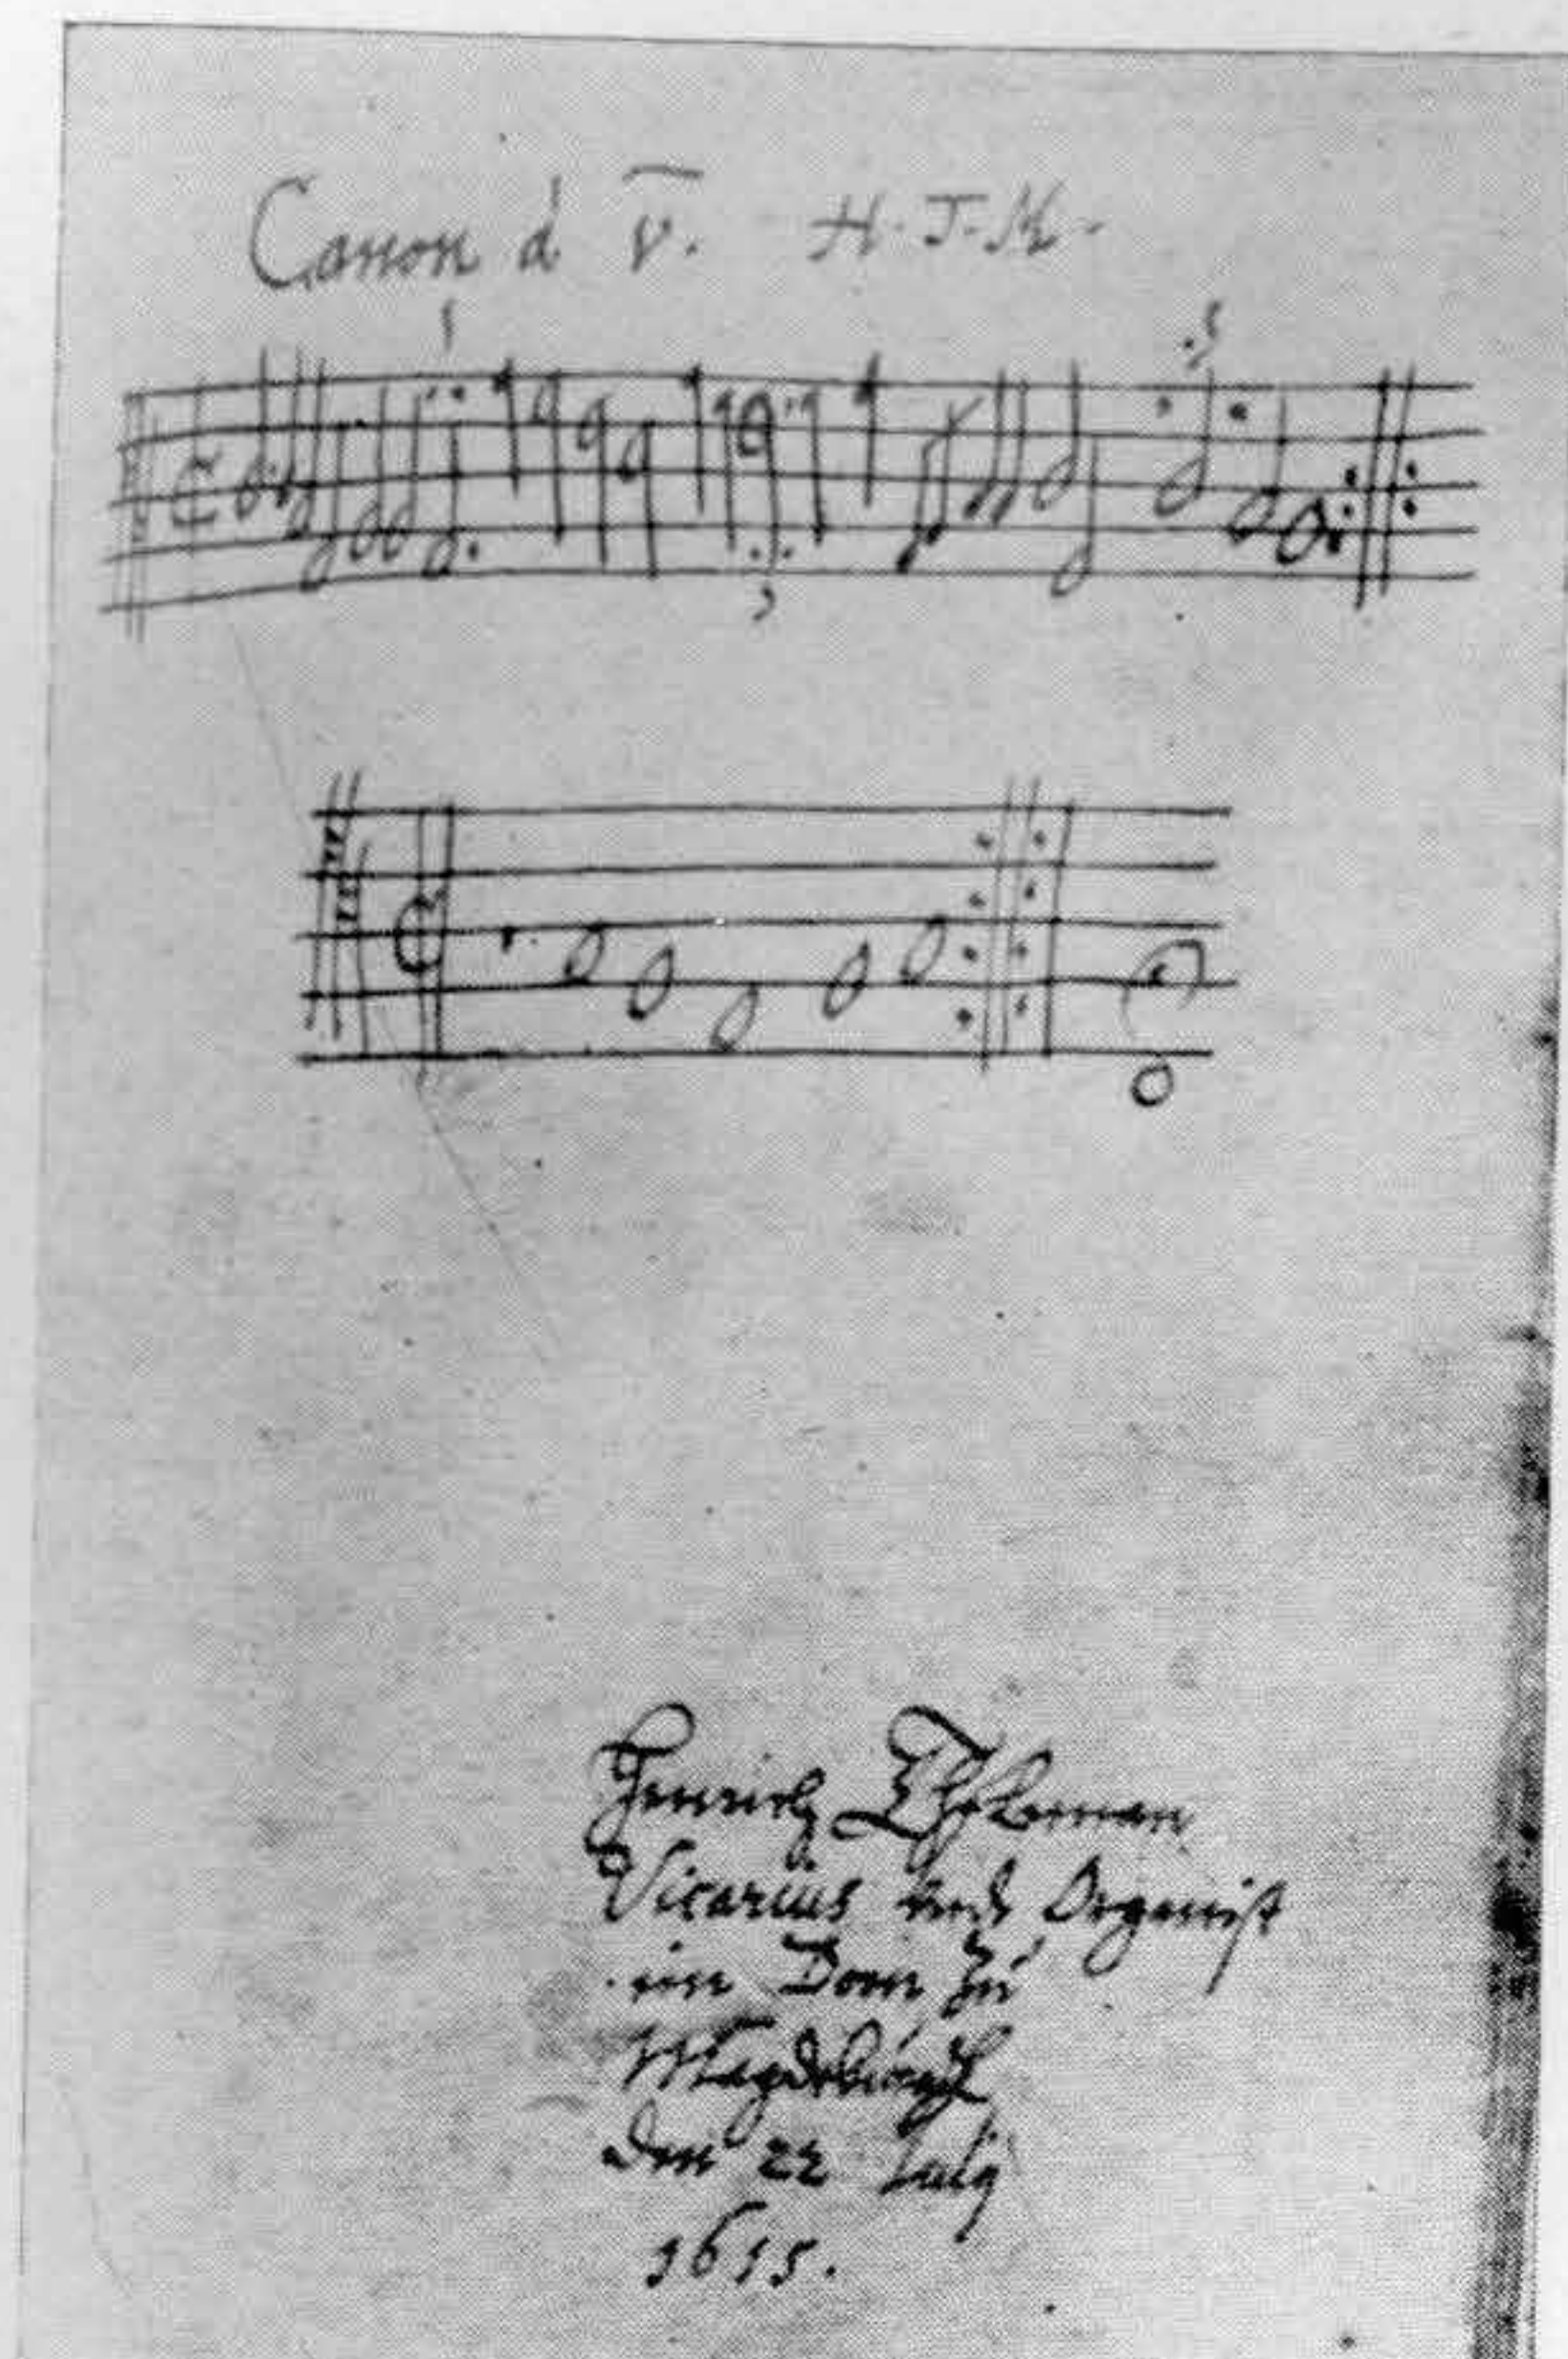 Canon à v. H. T. M.
Henrich Theleman
Vicarius vnd Organist
im Dom zu
Magdeburgk
den 22 July
1615.